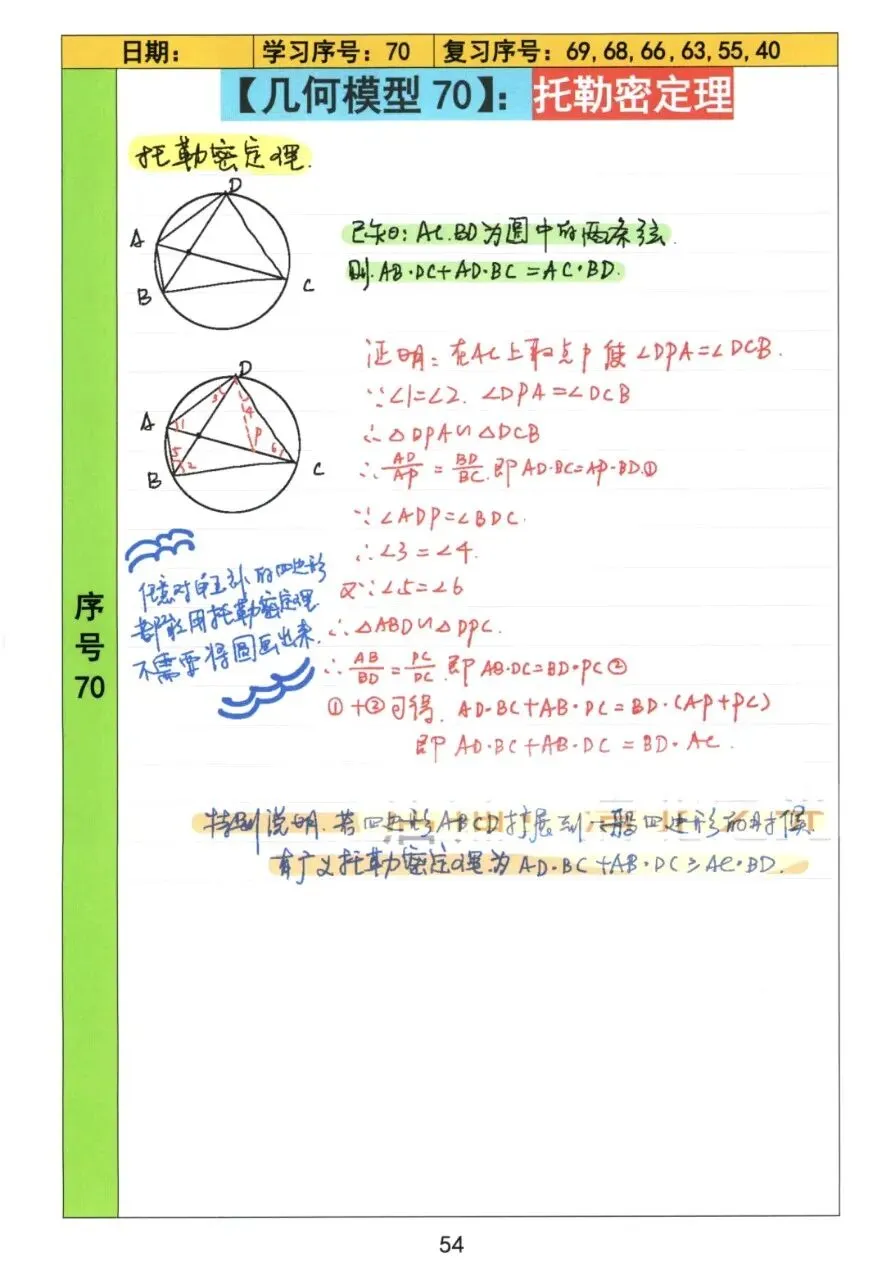 日期： 学习序号：70 复习序号：69,68,66,63,55,40
【几何模型 70】：托勒密定理
托勒密定理.
D
A
B
C
已知：AC.BD为圆中的两条弦.
则.AB·DC+AD·BC=AC·BD.
证明：在AC上取点P使∠DPA=∠DCB.
∵∠1=∠2. ∠DPA=∠DCB
∴△DPA∽△DCB
∴AD/AP=BD/BC.即AD·BC=AP·BD.①
∵∠ADP=∠BDC.
∴∠3=∠4.
又∵∠5=∠6
∴△ABD∽△DPC.
∴AB/BD=PC/DC.即AB·DC=BD·PC②
①+②可得.AD·BC+AB·DC=BD·(AP+PC)
即AD·BC+AB·DC=BD·AC.
D
A
B
C
P
1
2
3
4
5
6
任意对角互补的四边形
都能用托勒密定理.
不需要将圆画出来.
特别说明.若四边形ABCD扩展到一般四边形的时候.
有广义托勒密定理为AD·BC+AB·DC≥AC·BD.
序
号
70
54